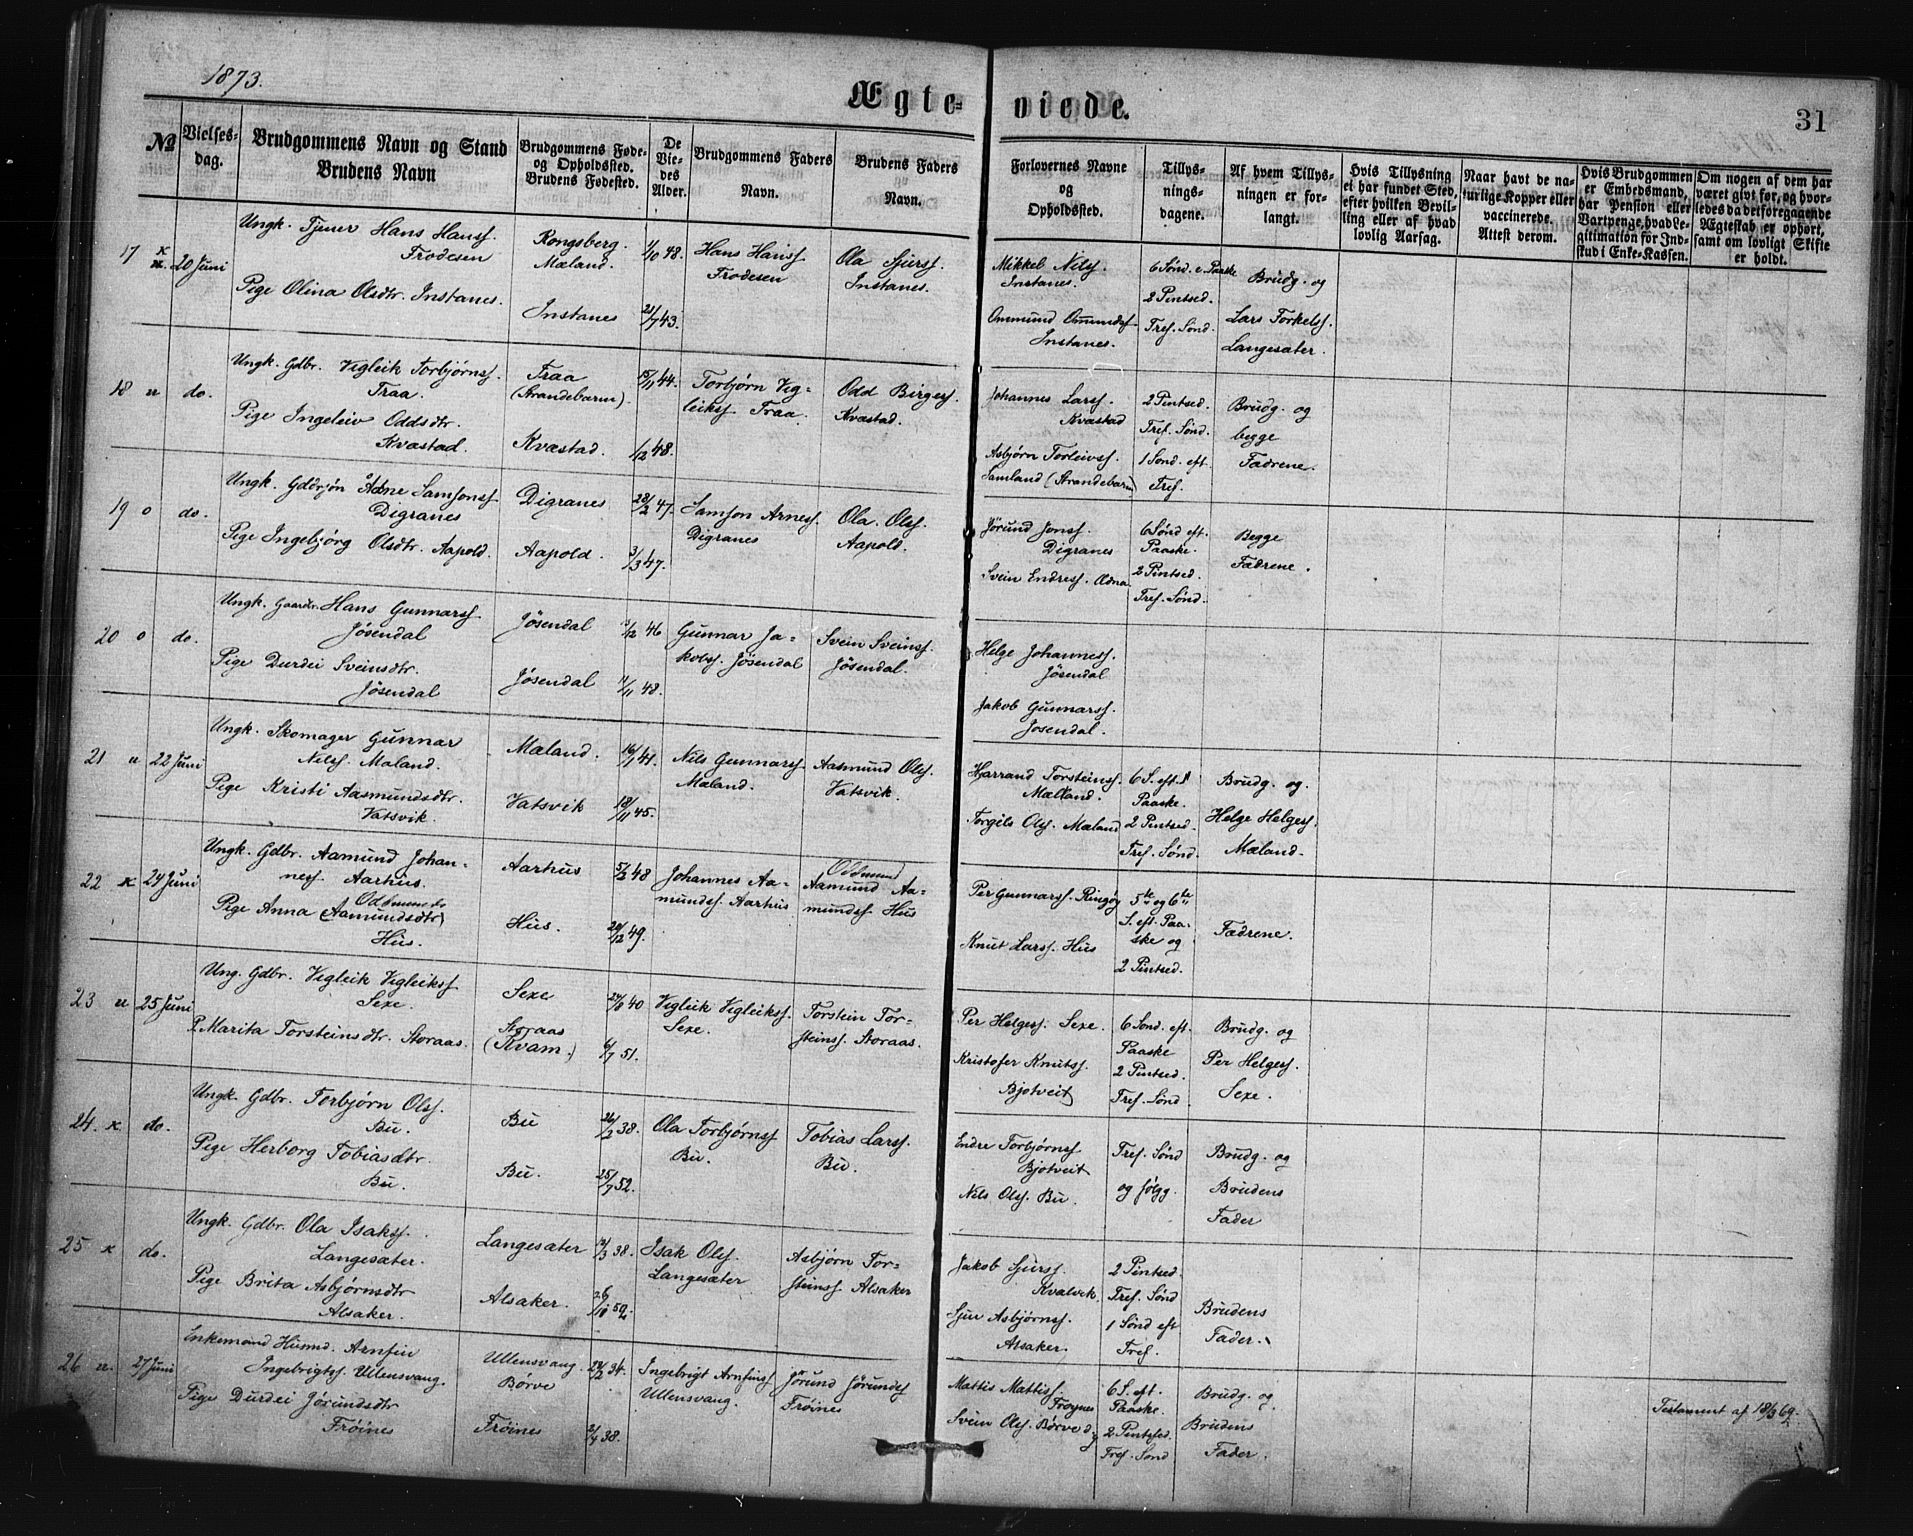 1873.
Ægte-
viede.
31
№
Vielses-
dag.
Brudgommens Navn og Stand
Brudens Navn
Brudgommens Føde-
og Opholdssted.
Brudens Fødested.
De
Vie-
des
Alder.
Brudgommens Faders
Navn.
Brudens Faders
Navn.
Forlovernes Navne
og
Opholdssted.
Tillys-
nings-
dagene.
Af hvem Tillys-
ningen er for-
langt.
Hvis Tillysning
ei har fundet Sted,
efter hvilken Bevil-
ling eller af hvad
lovlig Aarsag.
Naar havt de na-
turlige Kopper eller
vaccinerede.
Attest derom.
Hvis Brudgommen
er Embedsmand,
har Pension eller
Vartpenge, hvad Le-
gitimation for Ind-
skud i Enke-Kassen.
Om nogen af dem har
været givt før, og hvor-
ledes da det foregaaende
Ægteskab er ophørt,
samt om lovligt Skifte
er holdt.
17 20 Juni
Ungk. Tjener Hans Hansf.
Frodesen
Pige Olina Olsdtr. Instanes.
Kongsberg.
Mæland.
Instanes
1/10 48.
21/7 43.
Hans Hansf
Frodesen
Ola Sjursf.
Instanes.
Mikkel Nilsf.
Instanes.
Ommund Omundsf
Instanes.
6 Sønd. e. Paaske
2 Pintsed.
Tref. Sønd.
Brudg. og
Lars Torkelsf.
Langesater.
18 u do.
Ungk. Gdbr. Vigleik Torbjørnsf.
Traa.
Pige Ingeleiv Oddsdtr.
Kvæstad.
Traa
(Strandebarm).
Kvæstad.
15/11 44.
1/12 48.
Torbjørn Vig-
leiksf Traa.
Odd Birgesf.
Kvæstad.
Johannes Larsf.
Kvæstad
Asbjørn Torleivsf.
Samland (Strandebarm)
2 Pintsed.
Tref. Sønd.
1 Sønd. eft.
Tref.
Brudg. og
begge
Fædrene.
19 o do.
Ungk. Samsonsf
Digranes
Pige Ingebjørg Olsdtr. Aapold.
Digranes
Aapold.
28/2 47.
3/3 47.
Samson Arnesf.
Digranes
Ola Olsf.
Aapold.
Jørund Jonsf.
Digranes
Svein Endresf. Ædna
6 Sønd eft.
Paaske.
2 Pintsed.
Tref. Sønd.
Begge
Fædrene.
20 o do.
Ungk. Gaardbr. Hans Gunnarsf
Jøsendal
Pige Durdei Sveinsdtr.
Jøsendal
Jøsendal
Jøsendal
/12 46
11/11 48.
Gunnar Ja-
kobsf. Jøsendal
Svein Sveinsf.
Jøsendal.
Helge Johannesf.
Jøsendal
Jakob Gunnarsf.
Jøsendal.
21 u 22 Juni
Ungk. Skomager Gunnar
Nilsf. Maland.
Pige Kristi Aasmundsdtr.
Vatsvik.
Mæland.
Vatsvik
16/1 41.
18/11 45.
Nils Gunnarsf
Mæland.
Aasmund Olsf.
Vatsvik.
Harrand Torsteinsf.
Mæland.
Torgils Olsf. Mæland
6 S. eft.
Paaske.
2 Pintsed.
Tref. Sønd.
Brudg. og
Helge Helgesf.
Mæland.
22 x 24 Juni
Ungk. Gdbr. Aamund Johan-
nesf Aarhus.
Pige Anna (Aamundsdtr)
Hus.
Aarhus
Hus.
5/2 48
20/12 49.
Johannes Aa-
mundsf Aarhus
Oddmund
Aamund Aa-
mundsf Hus
Per Gunnarsf. Ringøy
Knut Larsf. Hus
5te og 6te
S. eft. Paa-
ske og
2 Pintsed.
Fædrene.
23 u 25 Juni
Ung. Gdbr. Vigleik Vigleiksf
Sexe.
P. Marita Torsteinsdtr. Storaas.
Sexe
Storaas
(Kvam.)
40
6/7 51.
Vigleik Vigleiksf.
Sexe.
Torstein Tor-
steinsf. Storaas.
Per Helgesf. Sexe.
Kristofer Knutsf.
Bjotveit
6 Sønd. eft.
Paaske
2 Pintsed.
Tref. Sønd
Brudg. og
Per Helgesf.
Sexe.
24. x. do.
Ungk. Gdbr. Torbjørn Olsf.
Bu.
Pige Herborg Tobiasdtr.
Bu.
Bu
Bu.
26/2 38.
25/7 52.
Ola Torbjørnsf
Bu.
Tobias Larsf.
Bu.
Endre Torbjørnsf
Bjotveit
Nils Olsf. Bu.
Tref. Sønd
og følgg.
Brudg. og
Brudens
Fader
25 x do.
Ungk. Gdbr. Ola Isaksf.
Langesæter.
Pige Brita Asbjørnsdtr
Alsaker.
Langesæter
Alsaker.
12/3 38.
26/10 52.
Isak Olsf.
Langesæter
Asbjørn Tor-
steinsf Alsaker
Jakob Sjursf.
Kvalvik.
Sjur Asbjørnsf.
Alsaker.
2 Pintsed.
Tref. Sønd
1 Sønd eft
Tref.
Brudens
Fader.
26 u. 27 Juni
Enkemand Husmd. Arnfin
Ingebrigtsf. Ullensvang.
Pige Durdei Jørundsdtr
Frøines
Ullensvang.
Børve
Frøines
22/2 34.
2/4 38.
Ingebrigt Arnfinsf
Ullensvang.
Jørund Jørundsf
Frøines
Mattis Mattisf.
Frøynes
Svein Olsf. Børve
6 S. eft.
Paaske.
2 Pintsed.
Tref. Sønd
Brudg. og
Brudens
Fader.
Testament af 18/3 69.